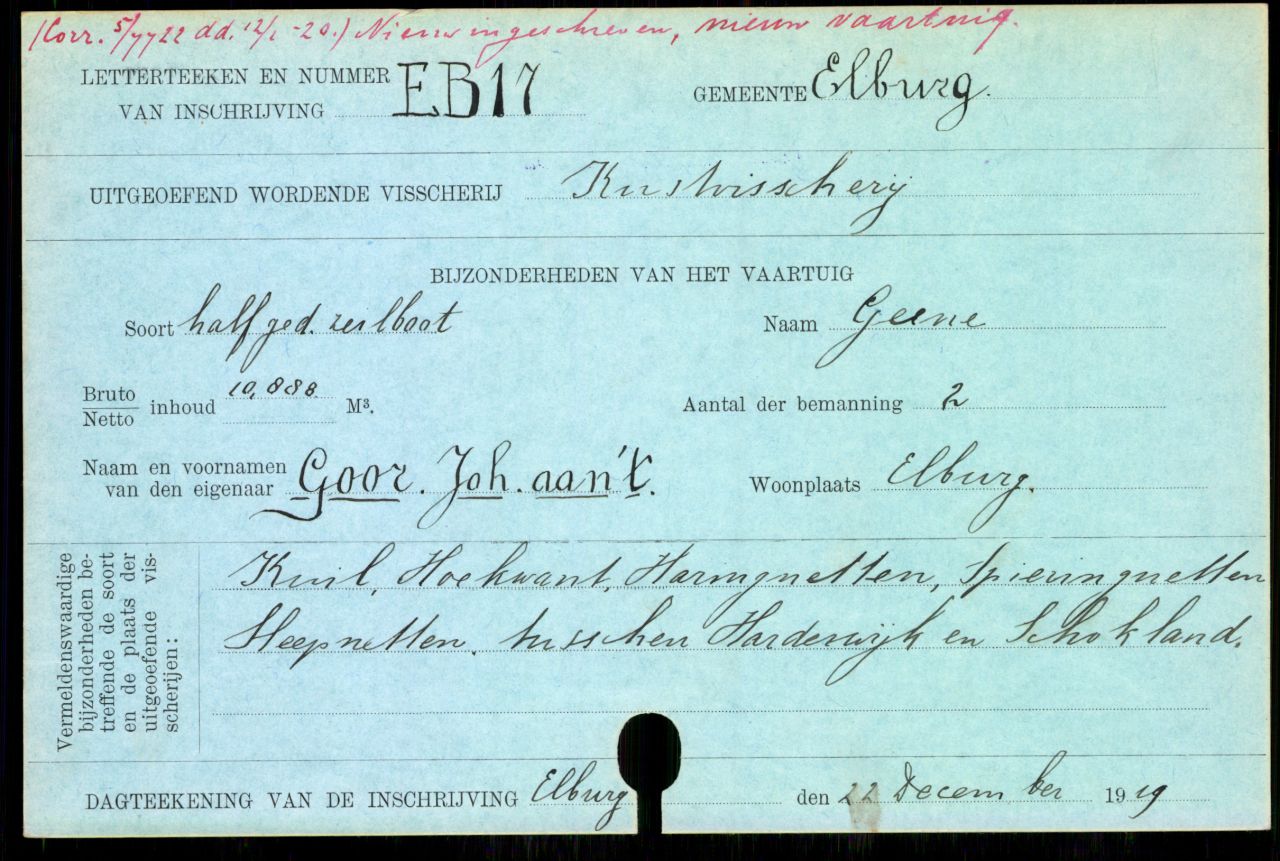 (Corr. 5/7722 dd. 12/1-20.) Nieuw ingeschreven, nieuw vaartuig.
LETTERTEEKEN EN NUMMER
VAN INSCHRIJVING EB17
GEMEENTE Elburg.
UITGEOEFEND WORDENDE VISSCHERIJ Kustvisscherij
BIJZONDERHEDEN VAN HET VAARTUIG
Soort half ged. zeilboot
Naam Geene
Bruto
Netto inhoud 10,888 M³.
Aantal der bemanning 2
Naam en voornamen
van den eigenaar Goor. Joh. aan 't.
Woonplaats Elburg.
Vermeldenswaardige
bijzonderheden be-
treffende de soort
en de plaats der
uitgeoefende vis-
scherijen:
Kuil, Hoekwant, Haringnetten, Spieringnetten
Sleepnetten. tusschen Harderwijk en Schokland.
DAGTEEKENING VAN DE INSCHRIJVING Elburg den 22 December 1919